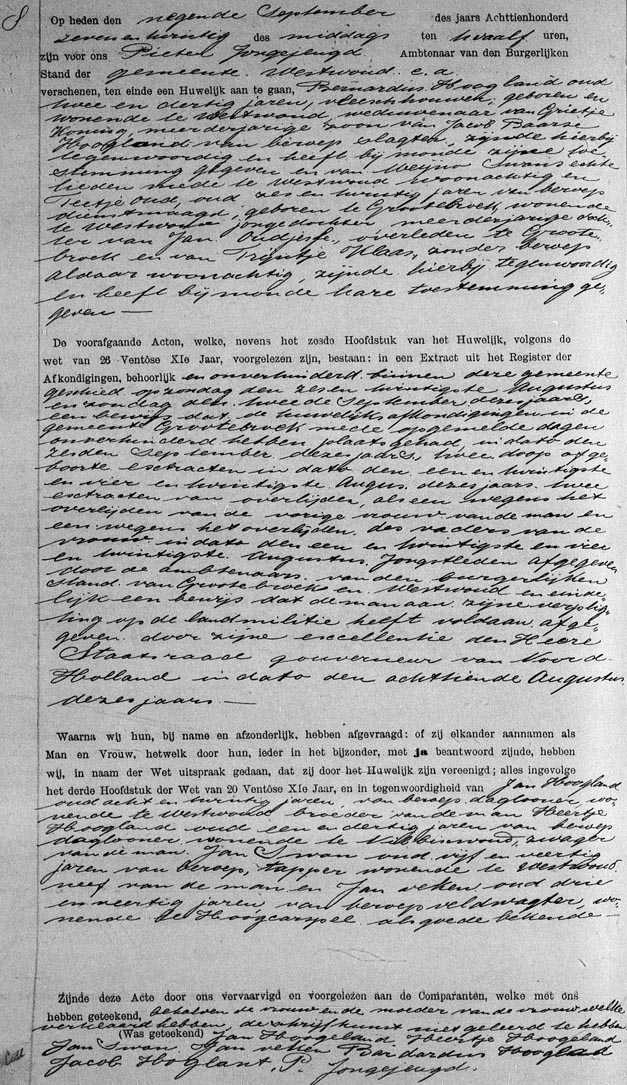 8
Op heden den negende September des jaars Achttienhonderd
zeven en twintig des middags ten twaalf uren,
zijn voor ons Pieter Jongejeugd Ambtenaar van den Burgerlijken
Stand der gemeente Westwoud c.a.
verschenen, ten einde een Huwelijk aan te gaan, Bernardus Hoogland oud
twee en dertig jaren, vleeschhouwer, geboren en
wonende te Westwoud, weduwenaar van Grietje
Koning, meerderjarige zoon van Jacob Baarse
Hoogland van beroep slagter, zijnde hierbij
tegenwoordig en heeft bij monde zijne toe
stemming gegeven en van Weijne Swans echte
lieden mede te Westwoud woonachtig en
Teetje Oud, oud zes en twintig jaren van beroep
dienstmaagd, geboren te Grootebroek, wonende
te Westwoud jongedochter, meerderjarige doch-
ter van Jan Oudjesfe, overleden te Groote-
broek en van Trijntje Klaas, zonder beroep
aldaar woonachtig, zijnde hierbij tegenwoordig
en heeft bij monde hare toestemming ge-
geven —
De voorafgaande Acten, welke, nevens het zesde Hoofdstuk van het Huwelijk, volgens de
wet van 26 Ventôse XIe Jaar, voorgelezen zijn, bestaan: in een Extract uit het Register der
Afkondigingen, behoorlijk en onverhinderd binnen deze gemeente
geschied op zondag den zes en twintigste Augustus
en zondag den twee de September dezes jaars,
een bewijs dat de huwelijks afkondigingen in de
gemeente Grootebroek mede opgemelde dagen
onverhinderd hebben plaats gehad, in dato den
zesden September dezes jaars, twee doop of ge-
boorte esctracten in dato den een en twintigste
en vier en twintigste Augus. dezes jaars. twee
esctracten van overlijden, als een wegens het
overlijden van de vorige vrouw van de man en
een wegens het overlijden des vaders van de
vrouw in dato den een en twintigste en vier
en twintigste Augustus Jongstleden afgegeven
door de ambtenaars van den burgerlijken
Stand van Grootebroek en Westwoud en einde-
lijk een bewijs dat de man aan zijne verplig-
ting op de landmilitie heeft voldaan, afge-
geven door zijne escellentie den Heere
Staatsraad gouverneur van Noord-
Holland in dato den achttiende Augustus
dezes jaars. —
Waarna wij hun, bij name en afzonderlijk, hebben afgevraagd: of zij elkander aannamen als
Man en Vrouw, hetwelk door hun, ieder in het bijzonder, met ja beantwoord zijnde, hebben
wij, in naam der Wet uitspraak gedaan, dat zij door het Huwelijk zijn vereenigd; alles ingevolge
het derde Hoofdstuk der Wet van 20 Ventôse XIe Jaar, en in tegenwoordigheid van Jan Hoogland
oud acht en twintig jaren, van beroep daglooner, wo-
nende te Westwoud broeder van de man Heertje
Hoogland oud een en dertig jaren van beroep
daglooner wonende te zwager
van de man. Jan Swan oud vijf en veertig
jaren van beroep, tapper wonende te Westwoud
neef van de man en Jan veken oud drie
en veertig jaren, van beroep veldwagter, wo-
nende te Hoogcarspel als goede bekende —
Zijnde deze Acte door ons vervaarvigd en voorgelezen aan de Comparanten, welke met ons
hebben geteekend, behalven de vrouw en de moeder van de vrouw welke
verklaard hebben, de schrijfkunst niet geleerd te hebben
(Was geteekend) Jan Hoogeland Heertje Hoogeland
Jan Swan Jan veken Bardardus Hooglad
Jacob Hoglant, P. Jongejeugd.